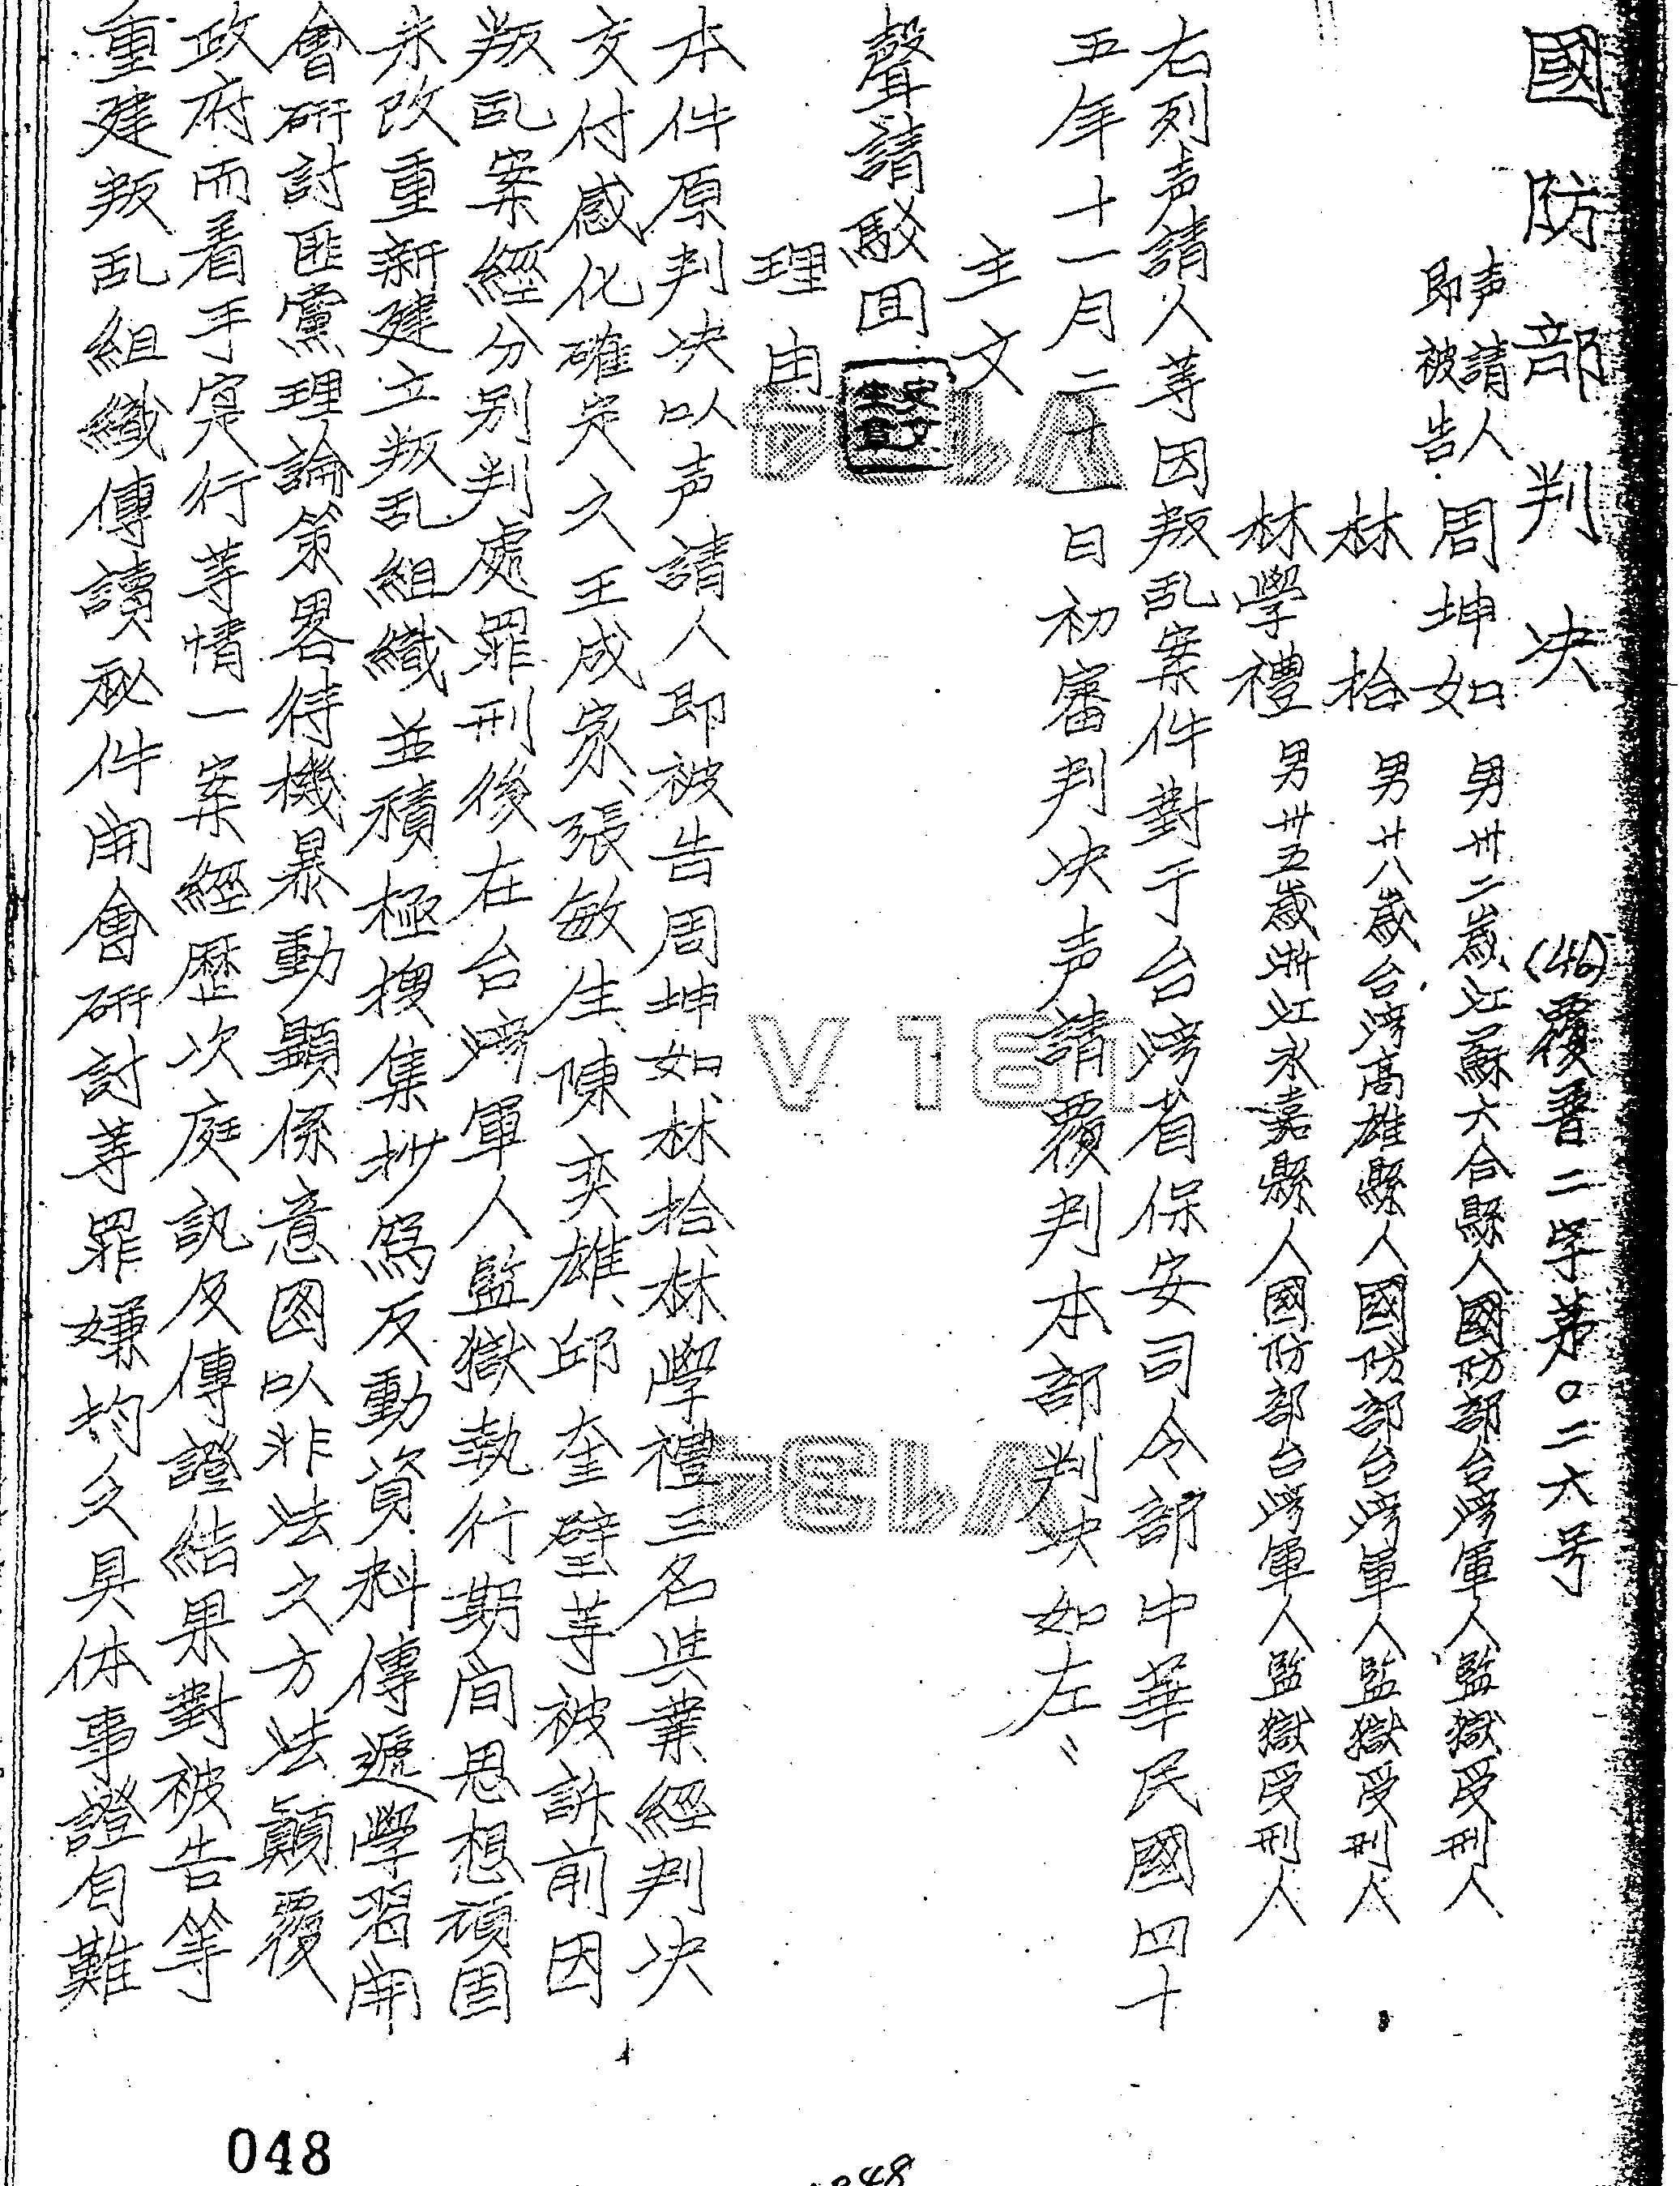 國防部判决
(46)覆普二字第〇二六号
声請人
即被告
周坤如 男卅二歲江蘇六合縣人國防部台湾軍人監獄受刑人
林拾 男廿八歲台湾高雄縣人國防部台湾軍人監獄受刑人
林學禮 男卅五歲浙江永嘉縣人國防部台湾軍人監獄受刑人
右列声請人等因叛乱案件對于台湾省保安司令部中華民國四十
五年十一月二十一日初審判决声請覆判本部判决如左:
主文
聲請駁回
理由
本件原判决以声請人即被告周坤如林拾林學禮三名共業經判决
交付感化確定之王成家、張敏生、陳奕雄、邱奎璧等被訴前因
叛乱案經分別判處罪刑後在台湾軍人監獄執行期间思想頑固
未改重新建立叛乱組織並積極搜集抄寫反動資料傳遞學習開
會研討匪黨理論策畧待機暴動顯係意图以非法之方法顛覆
政府而着手实行等情一案經歷次庭訊及傳證結果對被告等
重建叛乱組織傳讀秘件開會研討等罪嫌均欠具体事證自難
048
V 181